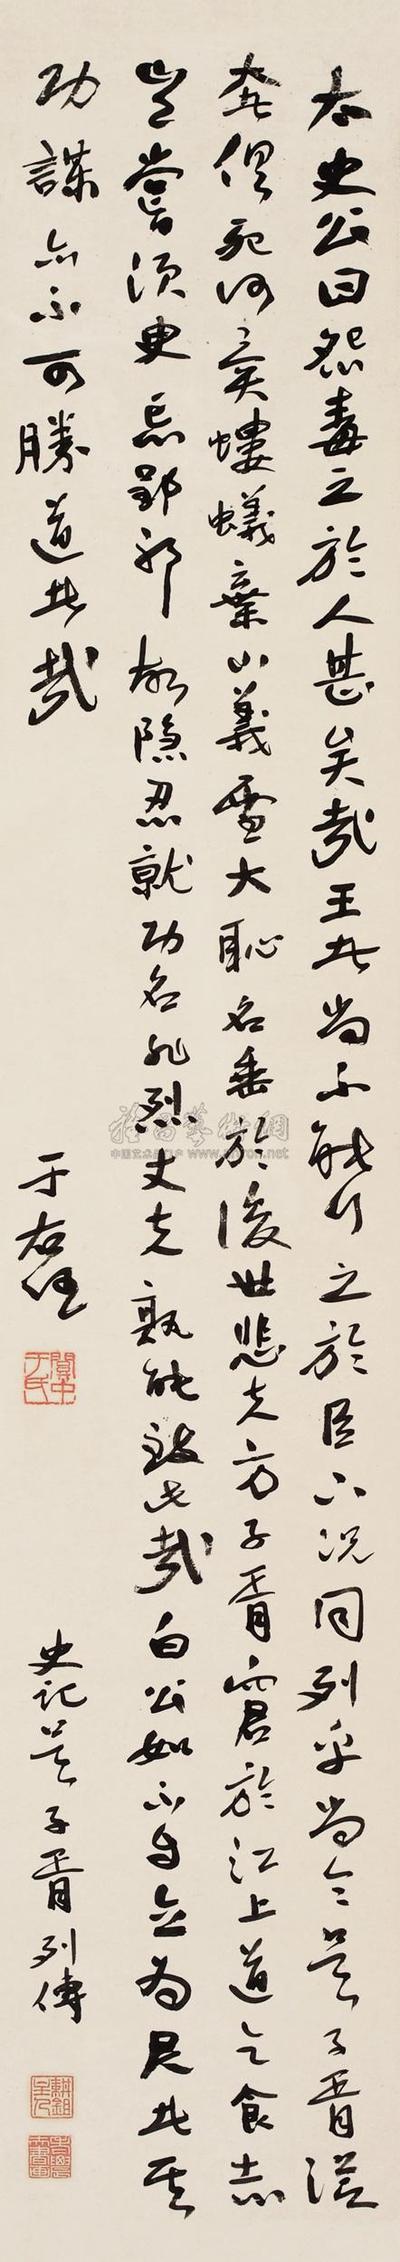 太史公曰怨毒之於人甚矣哉王者尚不能行之於臣下況同列乎尚令吳子胥從
奢俱死何異螻蟻棄小義雪大恥名垂於後世悲夫方子胥窘於江上道乞食志
豈嘗須臾忘郢邪故隱忍就功名非烈丈夫孰能致此哉白公如不自立為君者其
功謀亦不可勝道者哉
于右任
關中于氏
史記吳子胥列傳
雅昌藝術網
www.artron.net